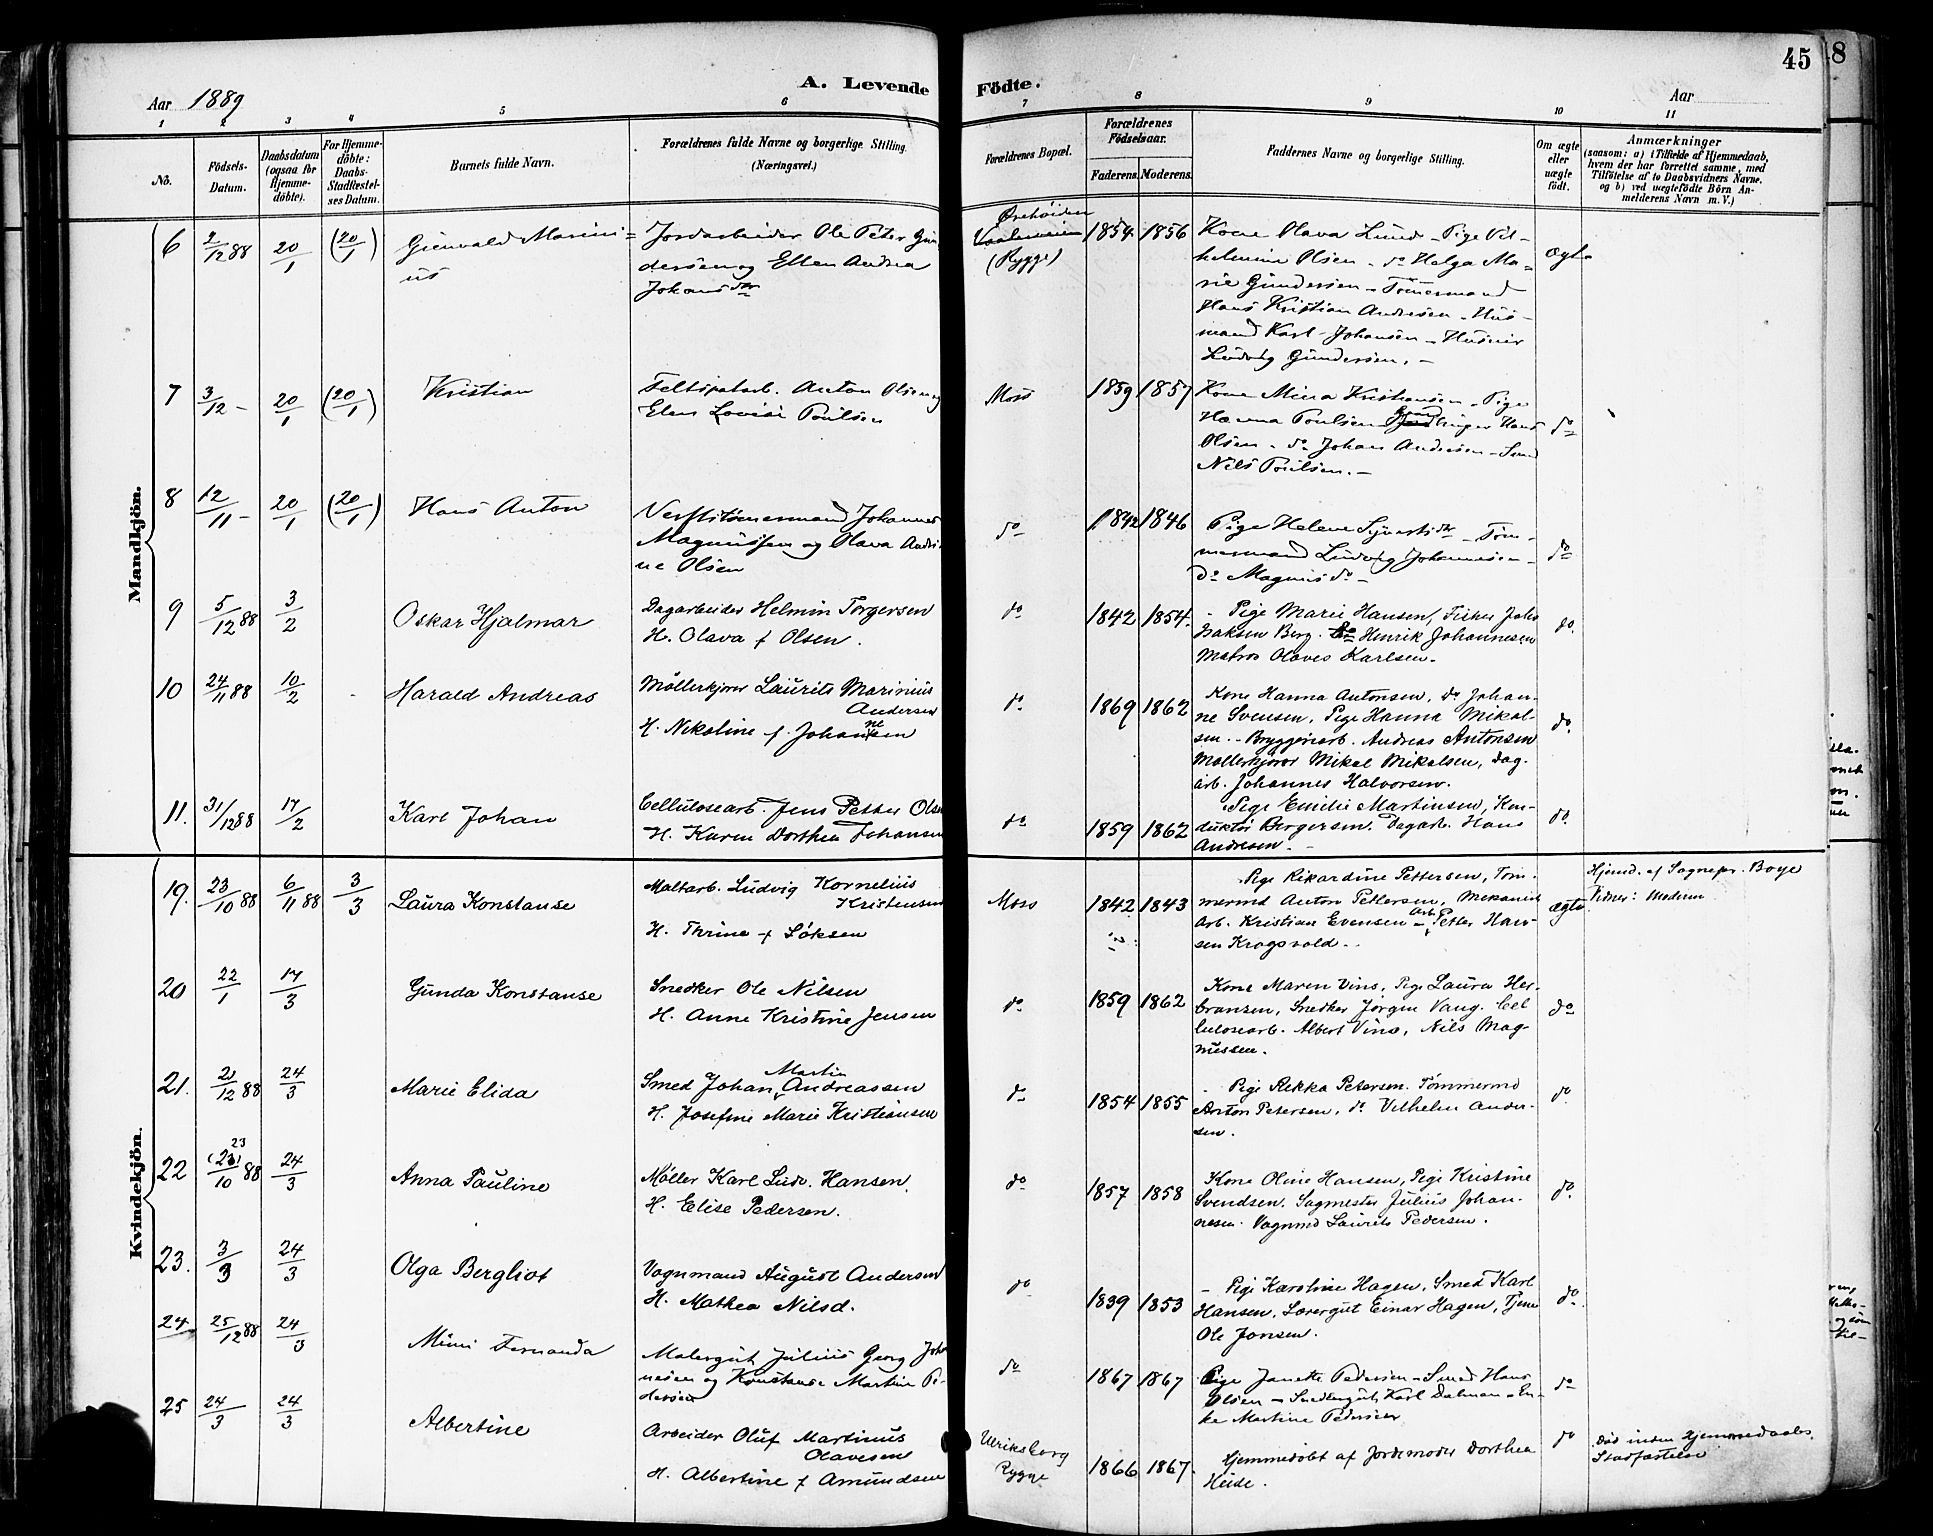 45
8
A. Levende Födte.
Aar 1889
Aar
1 2 3 4 5 6 7 8 9 10 11
No.
Födsels-Datum.
Daabsdatum (ogsaa for Hjemme-döbte).
For Hjemme-döbte: Daabs-Stadfæstel-ses Datum.
Barnets fulde Navn.
Forældrenes fulde Navne og borgerlige Stilling.
(Næringsvei.)
Forældrenes Bopæl.
Forældrenes Födselsaar.
Faderens. Moderens.
Faddernes Navne og borgerlige Stilling.
Om ægte eller uægte født.
Anmærkninger
(saasom: a) i Tilfælde af Hjemmedaab,
hvem der har forrettet samme, med
Tilföielse af to Daabsvidners Navne,
og b) ved uægtefödte Börn An-
melderens Navn m. V.)
Mandkjön.
6 2/12 88 20/1 (20/1) Gunvald Marini=
us
Jordarbeider Ole Peter Gun
dersen og Ellen Andrea
Johansdtr
Ørehöiden
(Rygge)
1854 1856
Kone Olava Lund - Pige Vil-
helmine Olsen - do Helga Ma=
rie Gundersen - Tömermand
Hans Kristian Andresen - Hus-
mand Karl Johansen - Huseier
Ludvig Gundersen. -
ægte
7 3/12 - 20/1 (20/1) Kristian
Feltspatarb. Anton Olsen og
Elen Lovise Poulsen
Moss
1859 1857
Kone Mina Kristiansen - Pige
Hanna Poulsen Hans
Olsen - do Johan Andersen - Smed
Nils Poulsen. -
do
8 12/11 - 20/1 (20/1) Hans Anton
Verftstömermand Johannes
Magnussen og Olava Andri-
ne Olsen
do
1842 1846
Pige Helene Syvertsdtr - Töm-
mermand Ludvig Johannesen -
do Magnus do -
do
9 5/12 88 3/2 Oskar Hjalmar
Dagarbeider Helmin Torgersen
H. Olava f Olsen.
do
1842 1854.
- Pige Marie Hansen, Fisker Johs
Isaksen Berg. Henrik Johannesen
Matros Olaves Karlsen.
do.
10 24/11 88 10/2 - Harald Andreas
Möllerkjører Laurits Marinius
Andersen
H. Nikoline f. Johannesen
do
1869 1862
Kone Hanna Antonsen, do Johan-
ne Svensen, Pige Hanna Mikal-
sen. - Bryggeriarb. Andreas Antonsen
Møllerkjører Mikal Mikalsen, Dag-
arb. Johannes Halvorsen.
do.
11. 31/12 88 17/2 Karl Johan
Cellulosearb. Jens Petter Olse
H. Karen Dorthea Johansen
do
1859 1862
Pige Emilie Martinsen, Kon-
duktør Bergersen. Dagarb. Hans
Andresen. -
do.
Kvindekjön.
19. 23/10 88 6/11 88 3/3 Laura Konstanse
Maltarb. Ludvig Kornelius
Kristensen
H. Thrine f Löksen
Moss
1842 1843
Pige Rikardine Pettersen, Töm-
mermd Anton Pettersen, Mekanisk
Arb. Kristian Evensen - Arb. Petter Han-
sen Krogsvold. -
ægte
Hjemd. af Sognepr. Boye
Vidner: Madam
20 22/1 17/3 Gunda Konstanse
Snedker Ole Nilsen
H. Anne Kristine Jensen
do
1859 1862
Kone Maren Vins, Pige Laura Her-
bransen, Snedker Jørgen Vang. Cel-
lulosearb. Albert Vins, Nils Mag-
nussen.
do
21. 21/12 88 24/3 Marie Elida
Smed Johan Martin Andreassen
H. Josefine Marie Kristiansen
do
1854 1855
- Pige Rikka Petersen. Tømmermd
Anton Petersen, do Vilhelm Ander-
sen.
do.
22 23/10 88 24/3 Anna Pauline
Møller Karl Ludv. Hansen.
H. Elise Pedersen.
do
1857 1858
Kone Oline Hansen, Pige Kristine
Svendsen. Sagmester Julius Johan-
nesen. Vognmd Laurits Pedersen.
do.
23. 3/3 24/3 Olga Bergliot
Vognmand August Andersen
H. Mathea Nilsd.
do
1839 1853
- Pige Karoline Hagen, Smed Karl
Hansen, Lærergut Einar Hagen, Tjener
Ole Jonsen.
do.
24 25/12 88 24/3 Mimi Fernanda
Malergut Julius Georg Joha
nesen og Konstanse Martine Pe-
dersen
do
1867 1867
Pige Janette Pedersen - Smed Hans
Olsen - Snedkergut Karl Dalman - En-
ke Martine Pedersen
do
25 24/3 24/3 Albertine
Arbeider Oluf Martinus
Olavesen
H. Albertine f Amundsen
Ulriksborg
Rygge
1866 1867.
Hjemmedøbt af Jordemoder Dorthea
Heide.
do
Død inden Hjemmedaabs
Stadfæstelse